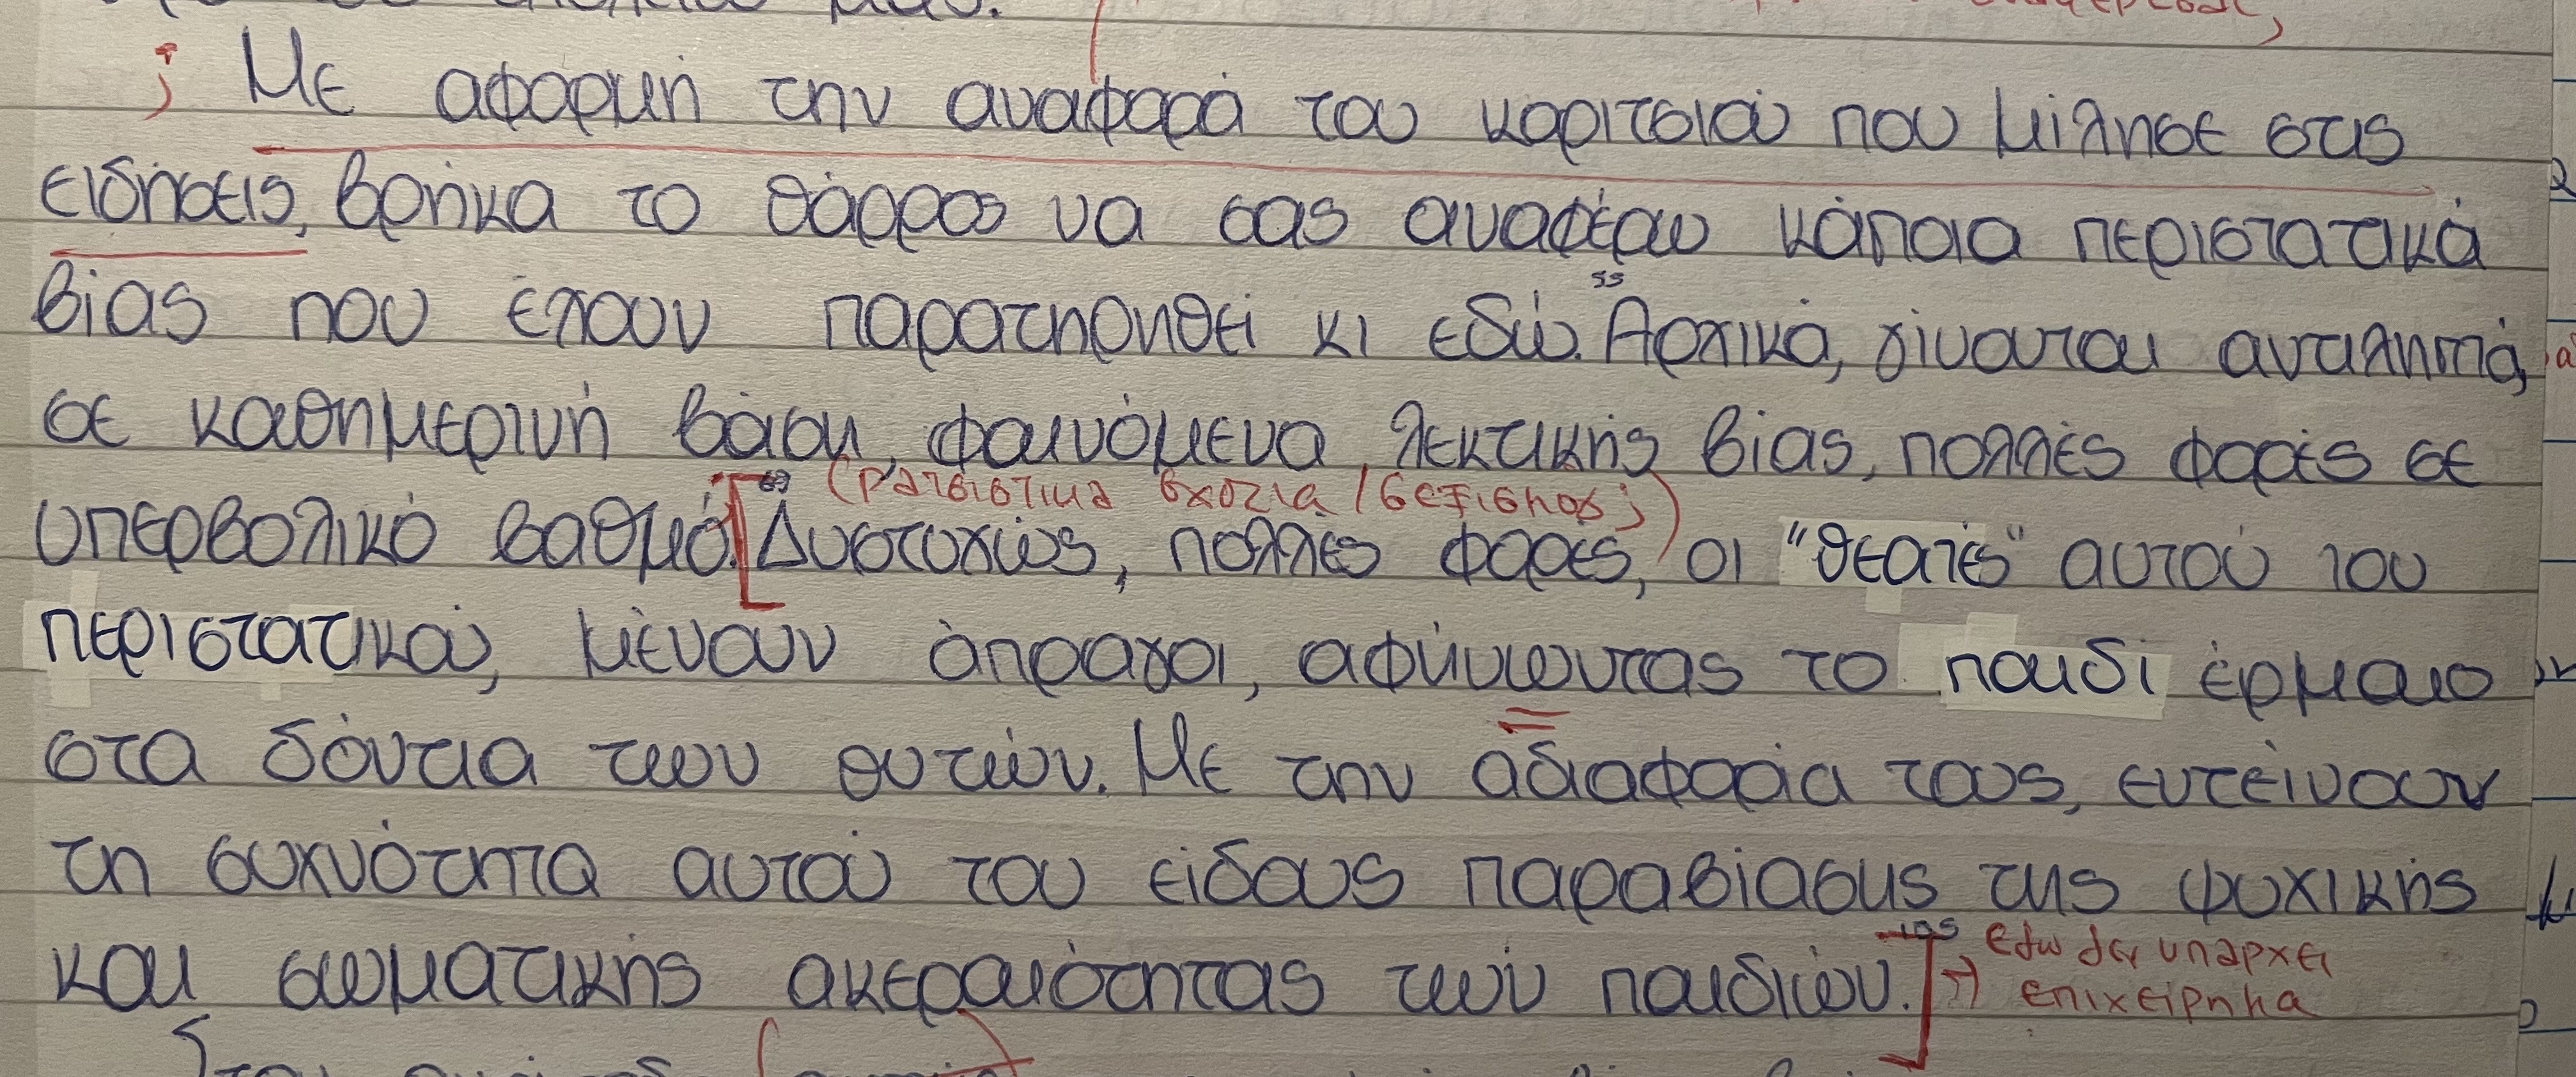 Με αφορμή την αναφορά του κοριτσιού που μίλησε στις
ειδήσεις, βρήκα το θάρρος να σας αναφέρω κάποια περιστατικά
βίας που έχουν παρατηρηθεί κι εδώ. Αρχικά, γίνονται αντιληπτά,
σε καθημερινή βάση, φαινόμενα λεκτικής βίας, πολλές φορές σε
(ρατσιστικα σχολια / σεξισμος;)
υπερβολικό βαθμό. Δυστυχώς, πολλές φορές, οι "θεατές" αυτού του
περιστατικού, μένουν άπραγοι, αφήνωντας το παιδί έρμαιο
στα δόντια των θυτών. Με την αδιαφορία τους, εντείνουν
τη συχνότητα αυτού του είδους παραβίασης της ψυχικής
και σωματικής ακεραιότητας των παιδιών.
→ εδω δεν υπαρχει
επιχειρημα